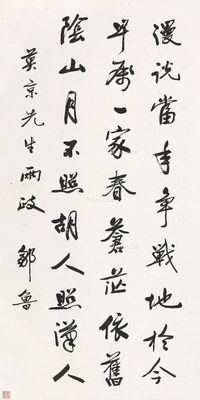 漫說當年爭戰地於今
早屬一家春蒼茫依舊
陰山月不照胡人照漢人
莫京先生兩政 鄒魯